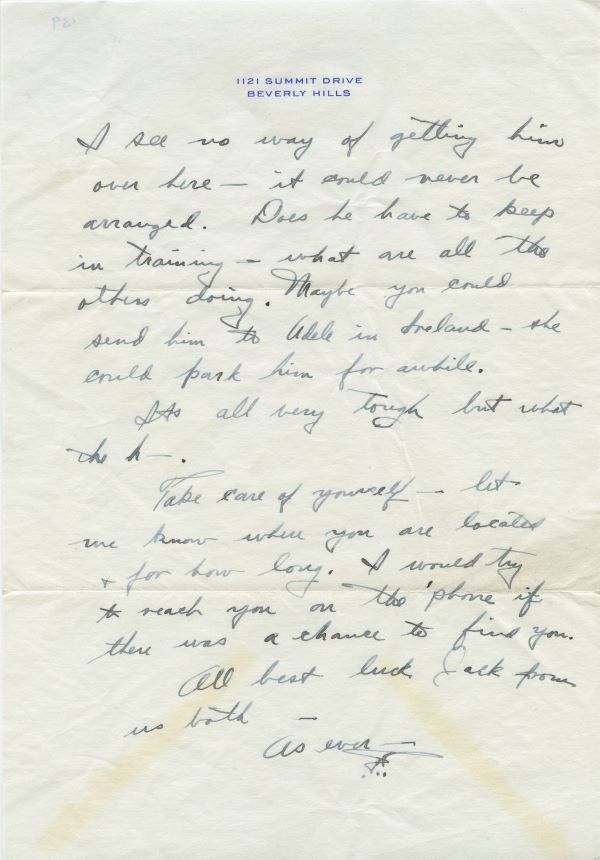 1121 SUMMIT DRIVE
BEVERLY HILLS
I see no way of getting him
over here — it could never be
arranged. Does he have to keep
in training — what are all the
others doing. Maybe you could
send him to Adele in Ireland — she
could park him for awhile.
Its all very tough but what
the h—.
Take care of yourself — let
me know where you are located
+ for how long. I would try
to reach you on the 'phone if
there was a chance to find you.
All best luck Jack from
us both —
As ever —